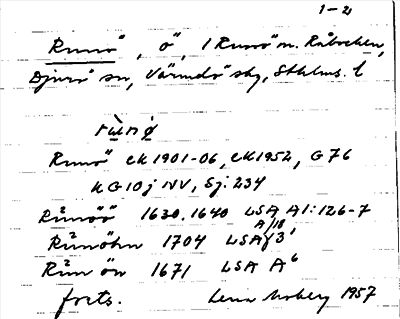 1-2
Runö, ö, i Runö m. Råbocken,
Djurö sn, Värmdö skg, Sthlms. l
rẁnø̀
Runö EK 1901-06, EK 1952, G 76
KG 10 j NV, Sj. 234
Runöö 1630. 1640 LSA A1:126-7
A 18
Runöhn 1704 LSA 3¹
Run ön 1671 LSA A⁶
forts. Lena Moberg 1957